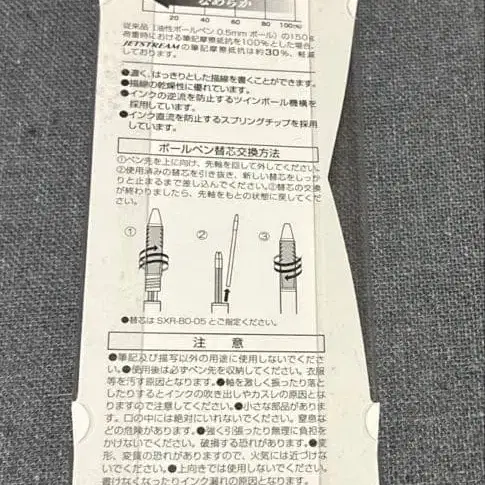 なめらか
20 40 60 80 100(%)
従来品(油性ボールペン 0.5mm ボール)の150g
荷重時における筆記摩擦抵抗を100%とした場合、
JETSTREAMの筆記摩擦抵抗は約30%、軽減
●濃く、はっきりとした描線を書くことができます。
●描線の乾燥性に優れています。
●インクの逆流を防止するツインボール機構を
採用しています。
●インク直流を防止するスプリングチップを採用
しています。
ボールペン替芯交換方法
①ペン先を上に向け、先軸を回して外してください。
②使用済みの替芯を引き抜き、新しい替芯をしっか
りと止まるまで差し込んでください。③替芯の交換
が終わりましたら、先軸をもとの状態に戻してくだ
さい。
① ② ③
●替芯は SXR-80-05 とご指定ください。
注 意
●筆記及び描写以外の用途に使用しないでくださ
い。●使用後は必ずペン先を収納してください。衣服
等を汚す原因となります。●軸を激しく振ったり落と
したりするとインクの吹き出しやカスレの原因とな
りますので注意してください。●小さな部品がありま
す。口の中には絶対にいれないでください。窒息な
どの危険があります。●強く引張ったり無理に負担を
かけないでください。破損する恐れがあります。●変
形、変質の恐れがありますので、火気には近づけな
いでください。●上向きでは使用しないでください。
書けなくなったりインク漏れの原因となります。